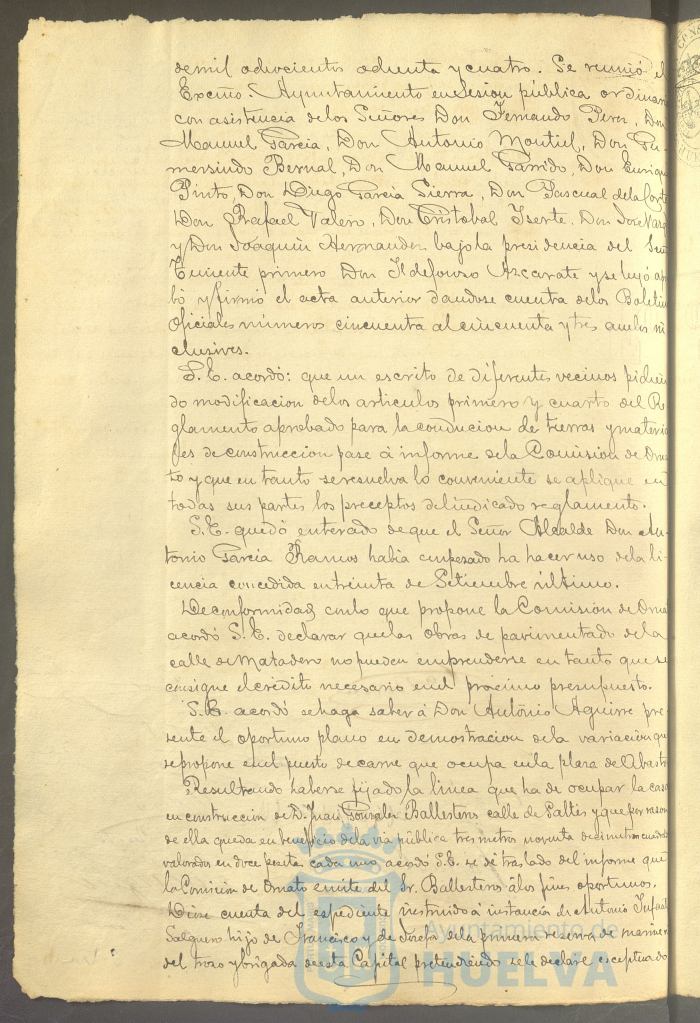 de mil ochocientos ochenta y cuatro. Se reunió el
Excmo. Ayuntamiento en sesion pública ordinar
con asistencia de los Señores Don Fernando Perez, Don
Manuel Garcia, Don Antonio Montiel, Don Gu-
mersindo Bernal, Don Manuel Garrido, Don Enriqu
Pinto, Don Diego Garcia Sierra, Don Pascual de la Corte
Don Rafael Valero, Don Cristobal Iserte, Don Jose Varg
y Don Joaquin Hernandez bajo la presidencia del Señ
Teniente primero Don Ildefonso Azcarate y se leyó apro
bó y firmó el acta anterior dandose cuenta de los Boletin
Oficiales números cincuenta al cincuenta y tres ambos in
clusives.
S.E. acordó: que un escrito de diferentes vecinos pidien
do modificacion de los articulos primero y cuarto del Re
glamento aprobado para la conducion de tierras y materia
les de construccion pase á informe de la Comision de Orna
to y que en tanto se resuelva lo conveniente se aplique en
todas sus partes los preceptos del indicado reglamento.
S.E. quedó enterado de que el Señor Alcalde Don An-
tonio Garcia Ramos habia empezado ha hacer uso de la li-
cencia concedida en treinta de Setiembre último.
De conformidad con lo que propone la Comision de Orna
acordó S.E. declarar que las obras de pavimentado de la
calle de Matadero no pueden emprenderse en tanto que se
consigne el crédito necesario en el proximo presupuesto.
S.E. acordó se haga saber á Don Antonio Aguirre pre
sente el oportuno plano en demostracion de la variacion que
se propone en el puesto de carne que ocupa en la plaza de Abasto
Resultando haberse fijado la linea que ha de ocupar la casa
en construccion de D. Juan Gonzalez Ballesteros calle de Saltés y que por razon
de ella queda en beneficio de la via pública tres metros noventa decimetros cuadrado
valorados en doce pesetas cada uno acordó S.E. se dé traslado del informe que
la Comision de Ornato emite del Sr. Ballesteros á los fines oportunos.
Diose cuenta del espediente instruido á instancia de Antonio
Salguero hijo de Francisco y de Josefa de la primera reserva de mariner
del trozo y brigada de esta Capital pretendiendo se le declare esceptuado
Ayuntamiento de
HUELVA